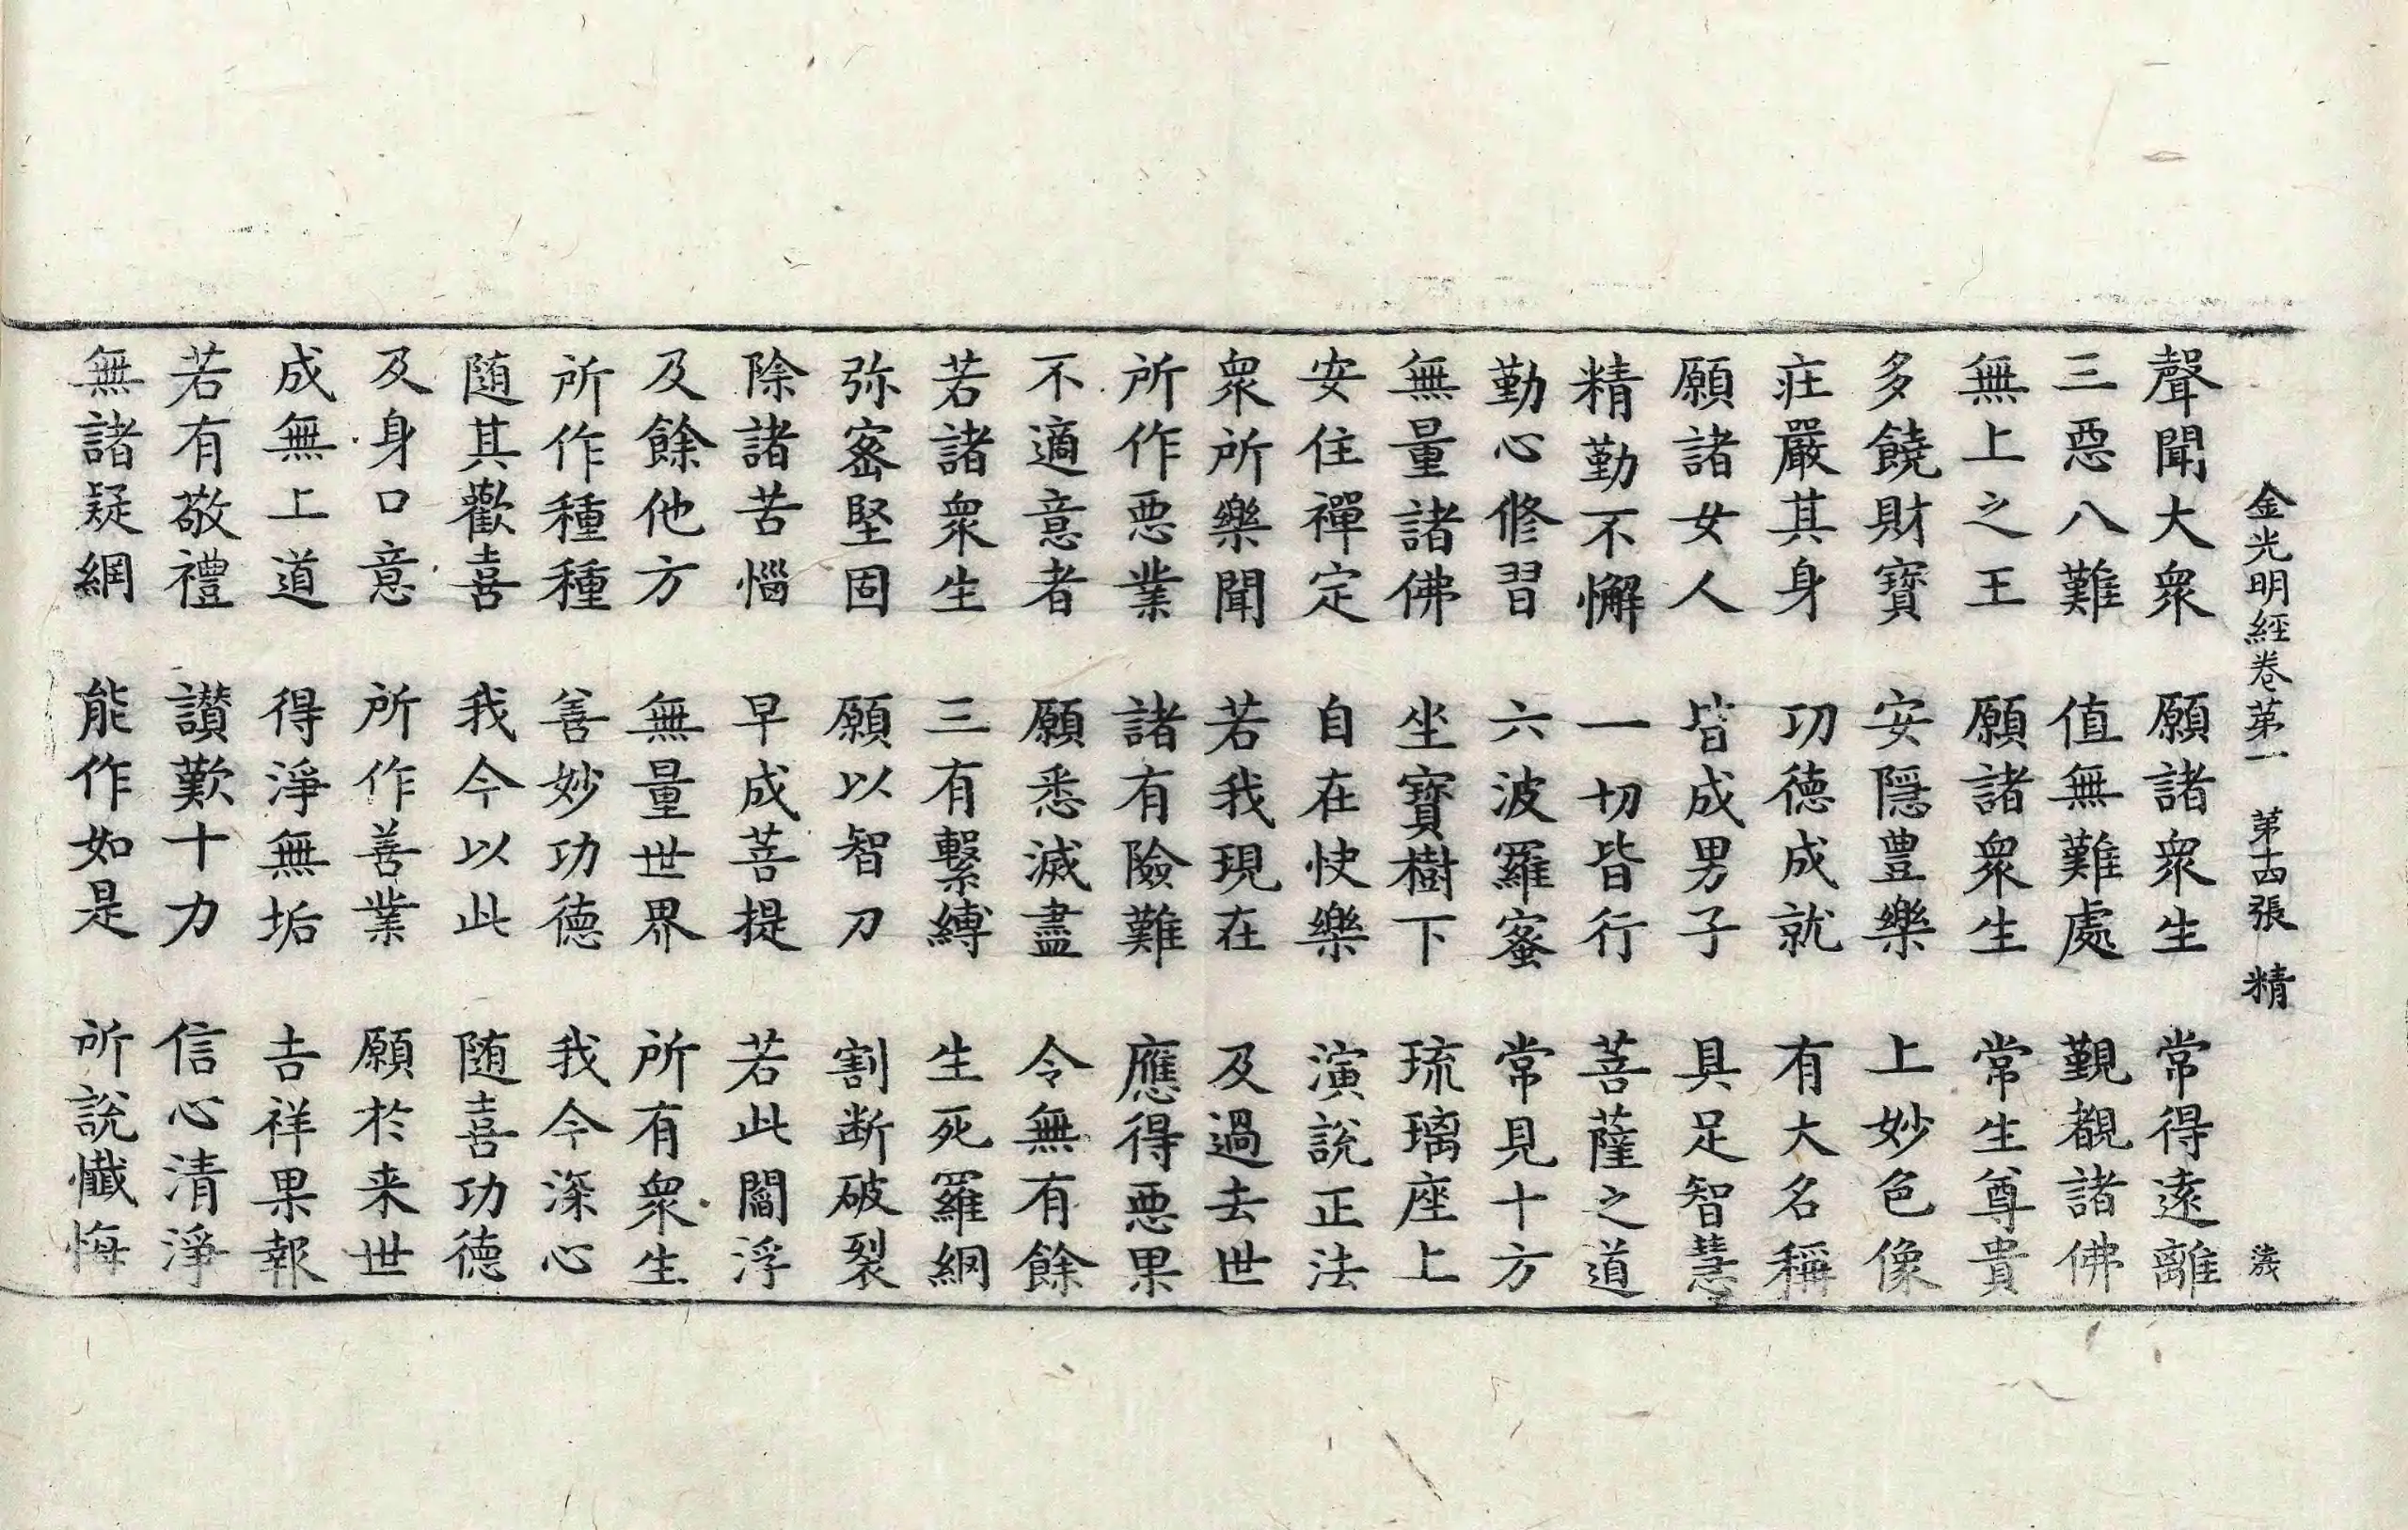 金光明經卷第一 第十四張 精
聲聞大衆 願諸衆生 常得遠離
三惡八難 值無難處 覲覩諸佛
無上之王 願諸衆生 常生尊貴
多饒財寶 安隱豊樂 上妙色像
莊嚴其身 功德成就 有大名稱
願諸女人 皆成男子 具足智慧
精勤不懈 一切皆行 菩薩之道
勤心修習 六波羅蜜 常見十方
無量諸佛 坐寶樹下 琉璃座上
安住禪定 自在快樂 演說正法
衆所樂聞 若我現在 及過去世
所作惡業 諸有險難 應得惡果
不適意者 願悉滅盡 令無有餘
若諸衆生 三有繫縛 生死羅網
弥密堅固 願以智刀 割断破裂
除諸苦惱 早成菩提 若此閻浮
及餘他方 無量世界 所有衆生
所作種種 善妙功德 我今深心
随其歡喜 我今以此 随喜功德
及身口意 所作善業 願於来世
成無上道 得淨無垢 吉祥果報
若有敬禮 讃歎十力 信心清淨
無諸疑網 能作如是 所說懺悔